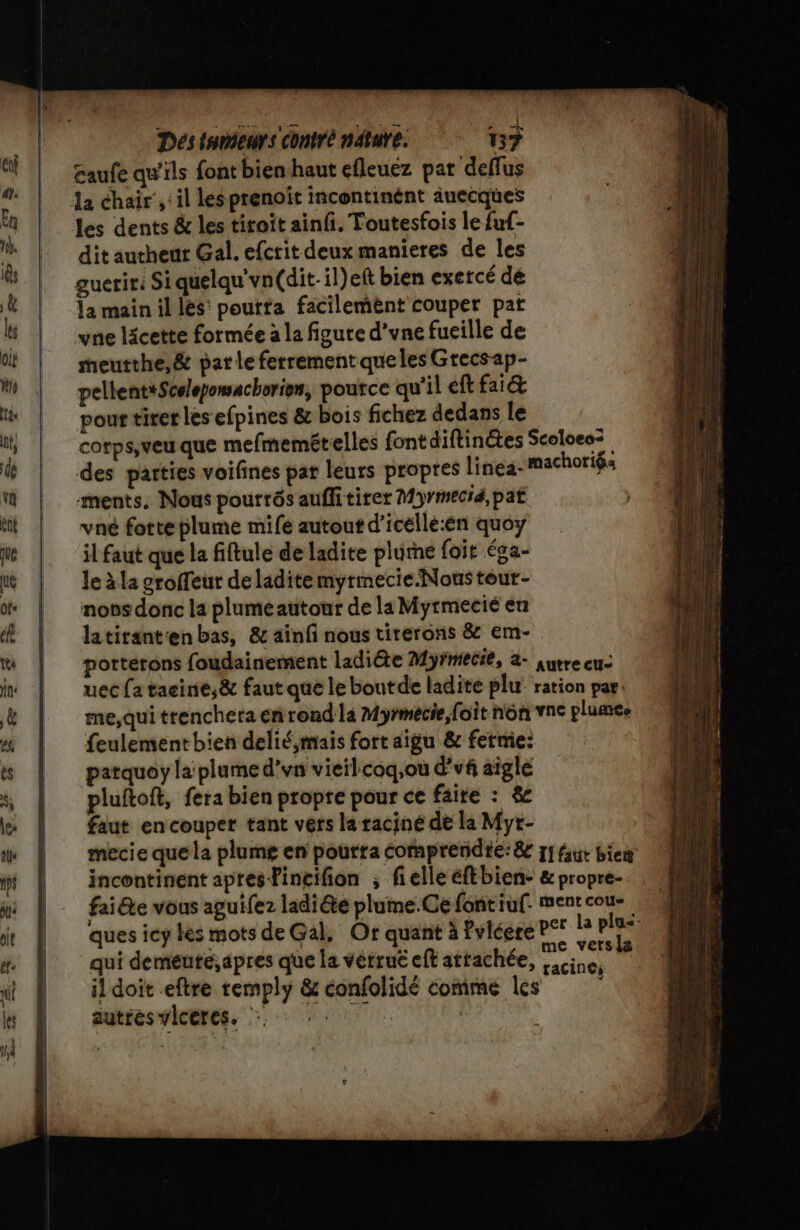 Des tumeurs contre nature. 137
cauſe qu'ils ſont bien haut eſleuez par deſſus
la chair, il les prenoit incontinént auecques
les dents & les tiroit ainſi. Toutesfois le ſuſ-
dit autheur Gal. eſcrit deux manieres de les
guerir: Si quelqu'vn (dit-il) eſt bien exercé de
la main il les pourra facilement couper par
vne lãcette formée à la figure d'vne fueille de
meurthe, & par le ferrement que les Grecs ap-
pellent*Scolopomachorion, pource qu'il eſt faict
pour tirer les eſpines & bois fichez dedans le
corps, veu que meſmemét elles ſont diſtinctes
des parties voiſines par leurs propres linea-
ments. Nous pourrõs auſſi tirer Myrmecia, par
vne forte plume miſe autour d'icelle: en quoy
il faut que la fiſtule de ladite plume ſoit éga-
le à la groſſeur de ladite myrmecie. Nous tour-
nons donc la plume autour de la Myrmecie en
la tirant en bas, & ainſi nous tirerons & em-
porterons ſoudainement ladicte Myrmecie, a-
uec ſa racine, & faut que le bout de ladite plu-
me, qui trenchera en rond la Myrmecie, ſoit non
ſeulement bien delié, mais fort aigu & ferme:
parquoy la plume d'vn vieil coq, ou d'vñ aigle
pluſtoſt, ſera bien propre pour ce faire: &
faut en couper tant vers la racine de la Myr-
mecie que la plume en pourra comprendre: &
incontinent apres l'inciſion; ſi elle eſt bien-
faicte vous aguiſez ladicte plume. Ce ſont iuſ-
ques icy les mots de Gal. Or quant à l'vlcere
qui demeure, apres que la verruë eſt attachée,
il doit eſtre remply & conſolidé comme les
autres vlceres.
Scoloeo-
machoriõ.
Autre cu-
ration par
vne plume.
Il faut bien
& propre-
ment cou-
per la plu-
me vers la
racine,